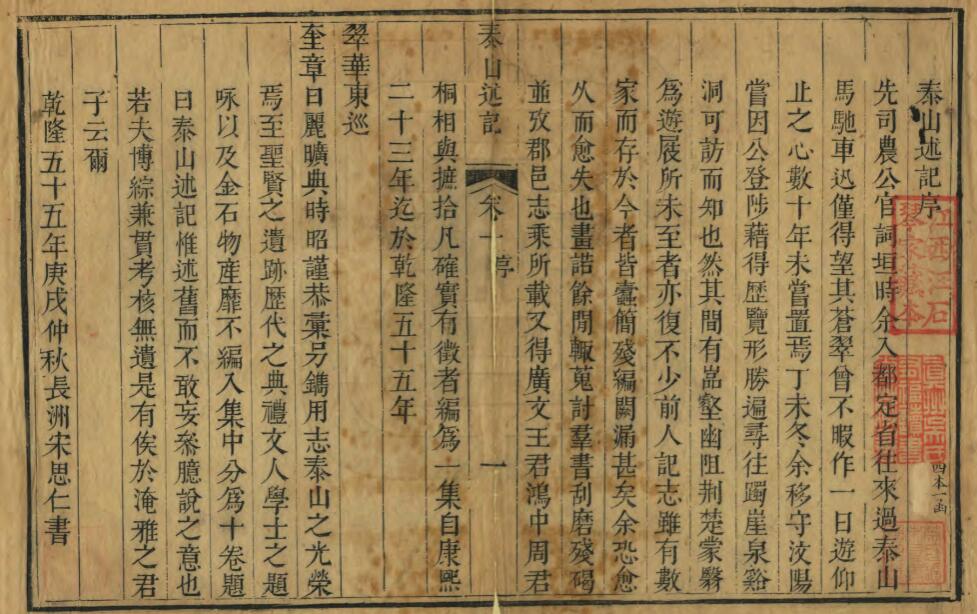 泰山述記序
先司農公官詞垣時余入都定省往來過泰山
馬馳車迅僅得望其蒼翠曾不暇作一日遊仰
止之心數十年未嘗置焉丁未冬余移守汶陽
嘗因公登陟藉得歷覽形勝遍尋往躅崖泉谿
洞可訪而知也然其間有嵓壑幽阻荆楚蒙翳
爲遊屐所未至者亦復不少前人記志雖有數
家而存於今者皆蠹簡殘編闕漏甚矣余恐愈
乆而愈失也畫諾餘閒輙蒐討羣書刮磨殘碣
並攷郡邑志乘所載又得廣文王君鴻中周君
桐相與摭拾凡確實有徵者編爲一集自康熙
二十三年迄於乾隆五十五年
泰山述記
卷一 序
一
翠華東巡
奎章日麗曠典時昭謹恭彚另鐫用志泰山之光榮
焉至聖賢之遺跡歷代之典禮文人學士之題
咏以及金石物産靡不編入集中分爲十卷題
曰泰山述記惟述舊而不敢妄叅臆說之意也
若夫博綜兼貫考核無遺是有俟於淹雅之君
子云爾
乾隆五十五年庚戌仲秋長洲宋思仁書
四本一函